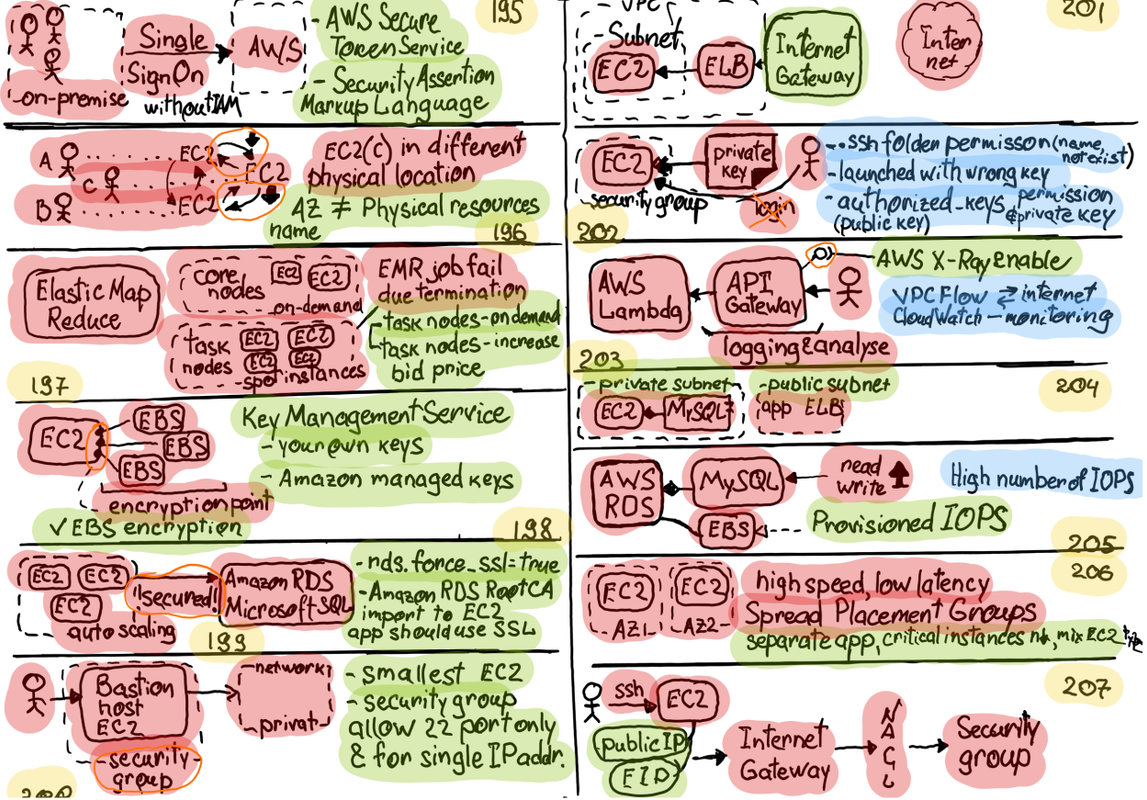 195
Single
Sign On
without IAM
AWS
on-premise
- AWS Secure
Token Service
- Security Assertion
Markup Language
A
EC2
C
EC2
B
EC2
EC2(C) in different
physical location
AZ ≠ Physical resources
name
196
Elastic Map
Reduce
core
nodes
EC2
EC2
on-demand
task
nodes
EC2
EC2
EC2
EC2
- spot instances
EMR job fail
due termination
task nodes - on demand
task nodes - increase
bid price
197
EC2
EBS
EBS
EBS
encryption point
✓ EBS encryption
Key Management Service
- your own keys
- Amazon managed keys
198
EC2
EC2
EC2
auto scaling
!secured!
Amazon RDS
Microsoft SQL
- rds.force_ssl=true
- Amazon RDS Root CA
import to EC2
app should use SSL
199
Bastion
host
EC2
- security -
group
network
privat
- smallest EC2
- security group
allow 22 port only
& for single IP addr.
VPC
- Subnet
EC2
ELB
Internet
Gateway
Inter
net
201
EC2
security group
private
key
login
- .ssh folder permisson (name,
not exist)
- launched with wrong key
- authorized_keys permission
(public key) & private key
202
AWS
Lambda
API
Gateway
logging & analyse
AWS X-Ray enable
VPC Flow ⇄ internet
CloudWatch - monitoring
203
- private subnet
EC2
MySQL
- public subnet
app ELB
204
AWS
RDS
MySQL
EBS
read
write
Provisioned IOPS
High number of IOPS
205
206
EC2
AZ1
EC2
AZ2
high speed, low latency
Spread Placement Groups
separate app, critical instances
mix EC2
207
ssh
EC2
public IP
EIP
Internet
Gateway
NACL
Security
group